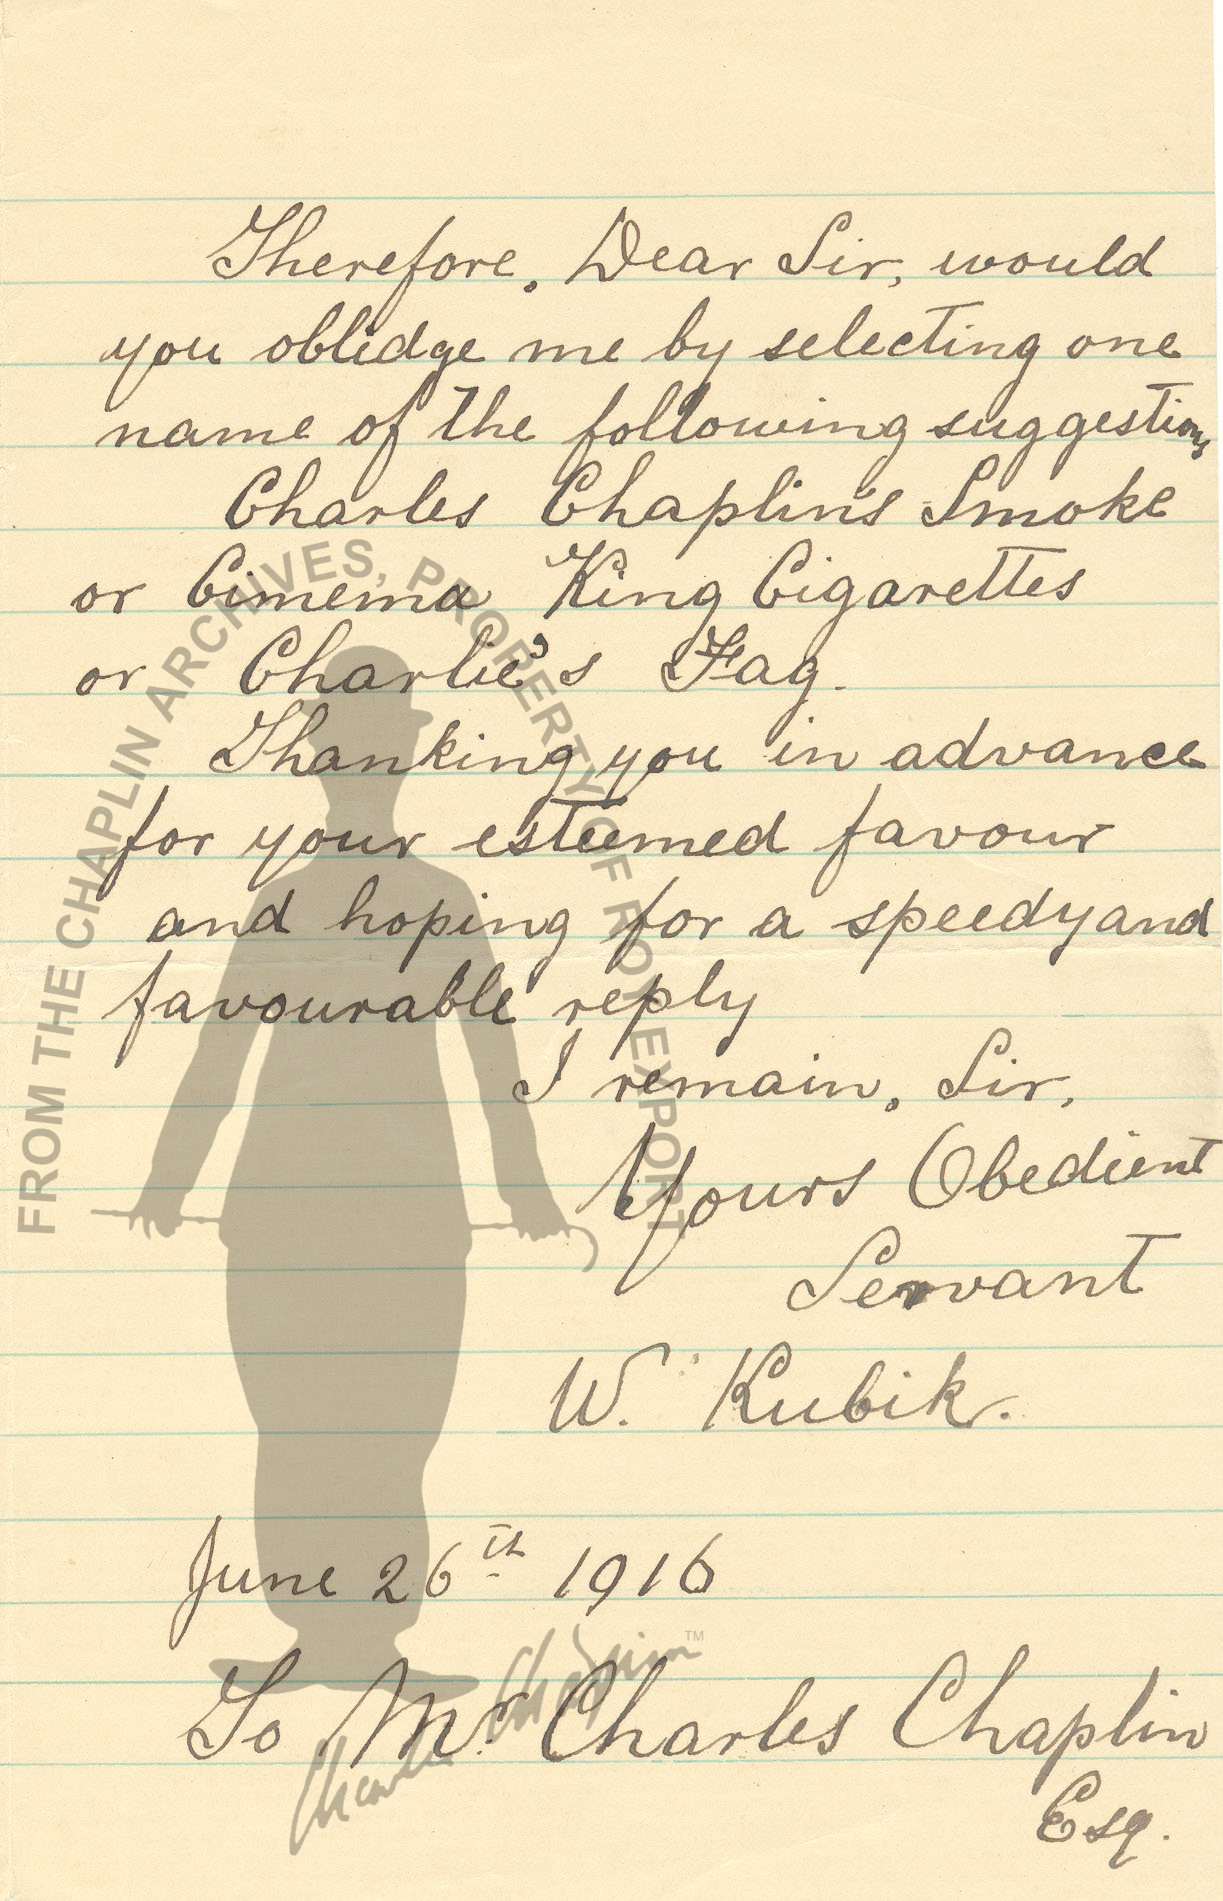 Therefore. Dear Sir, would
you oblidge me by selecting one
name of the following suggestions
Charles Chaplin's Smoke
or Cimema King Cigarettes
or Charlie's Fag.
Thanking you in advance
for your esteemed favour
and hoping for a speedy and
favourable reply
I remain, Sir,
Yours Obedient
Servant
W. Kubik.
June 26th 1916
To Mr Charles Chaplin
Esq.
FROM THE CHAPLIN ARCHIVES, PROPERTY OF ROY EXPORT
Charlie Chaplin TM